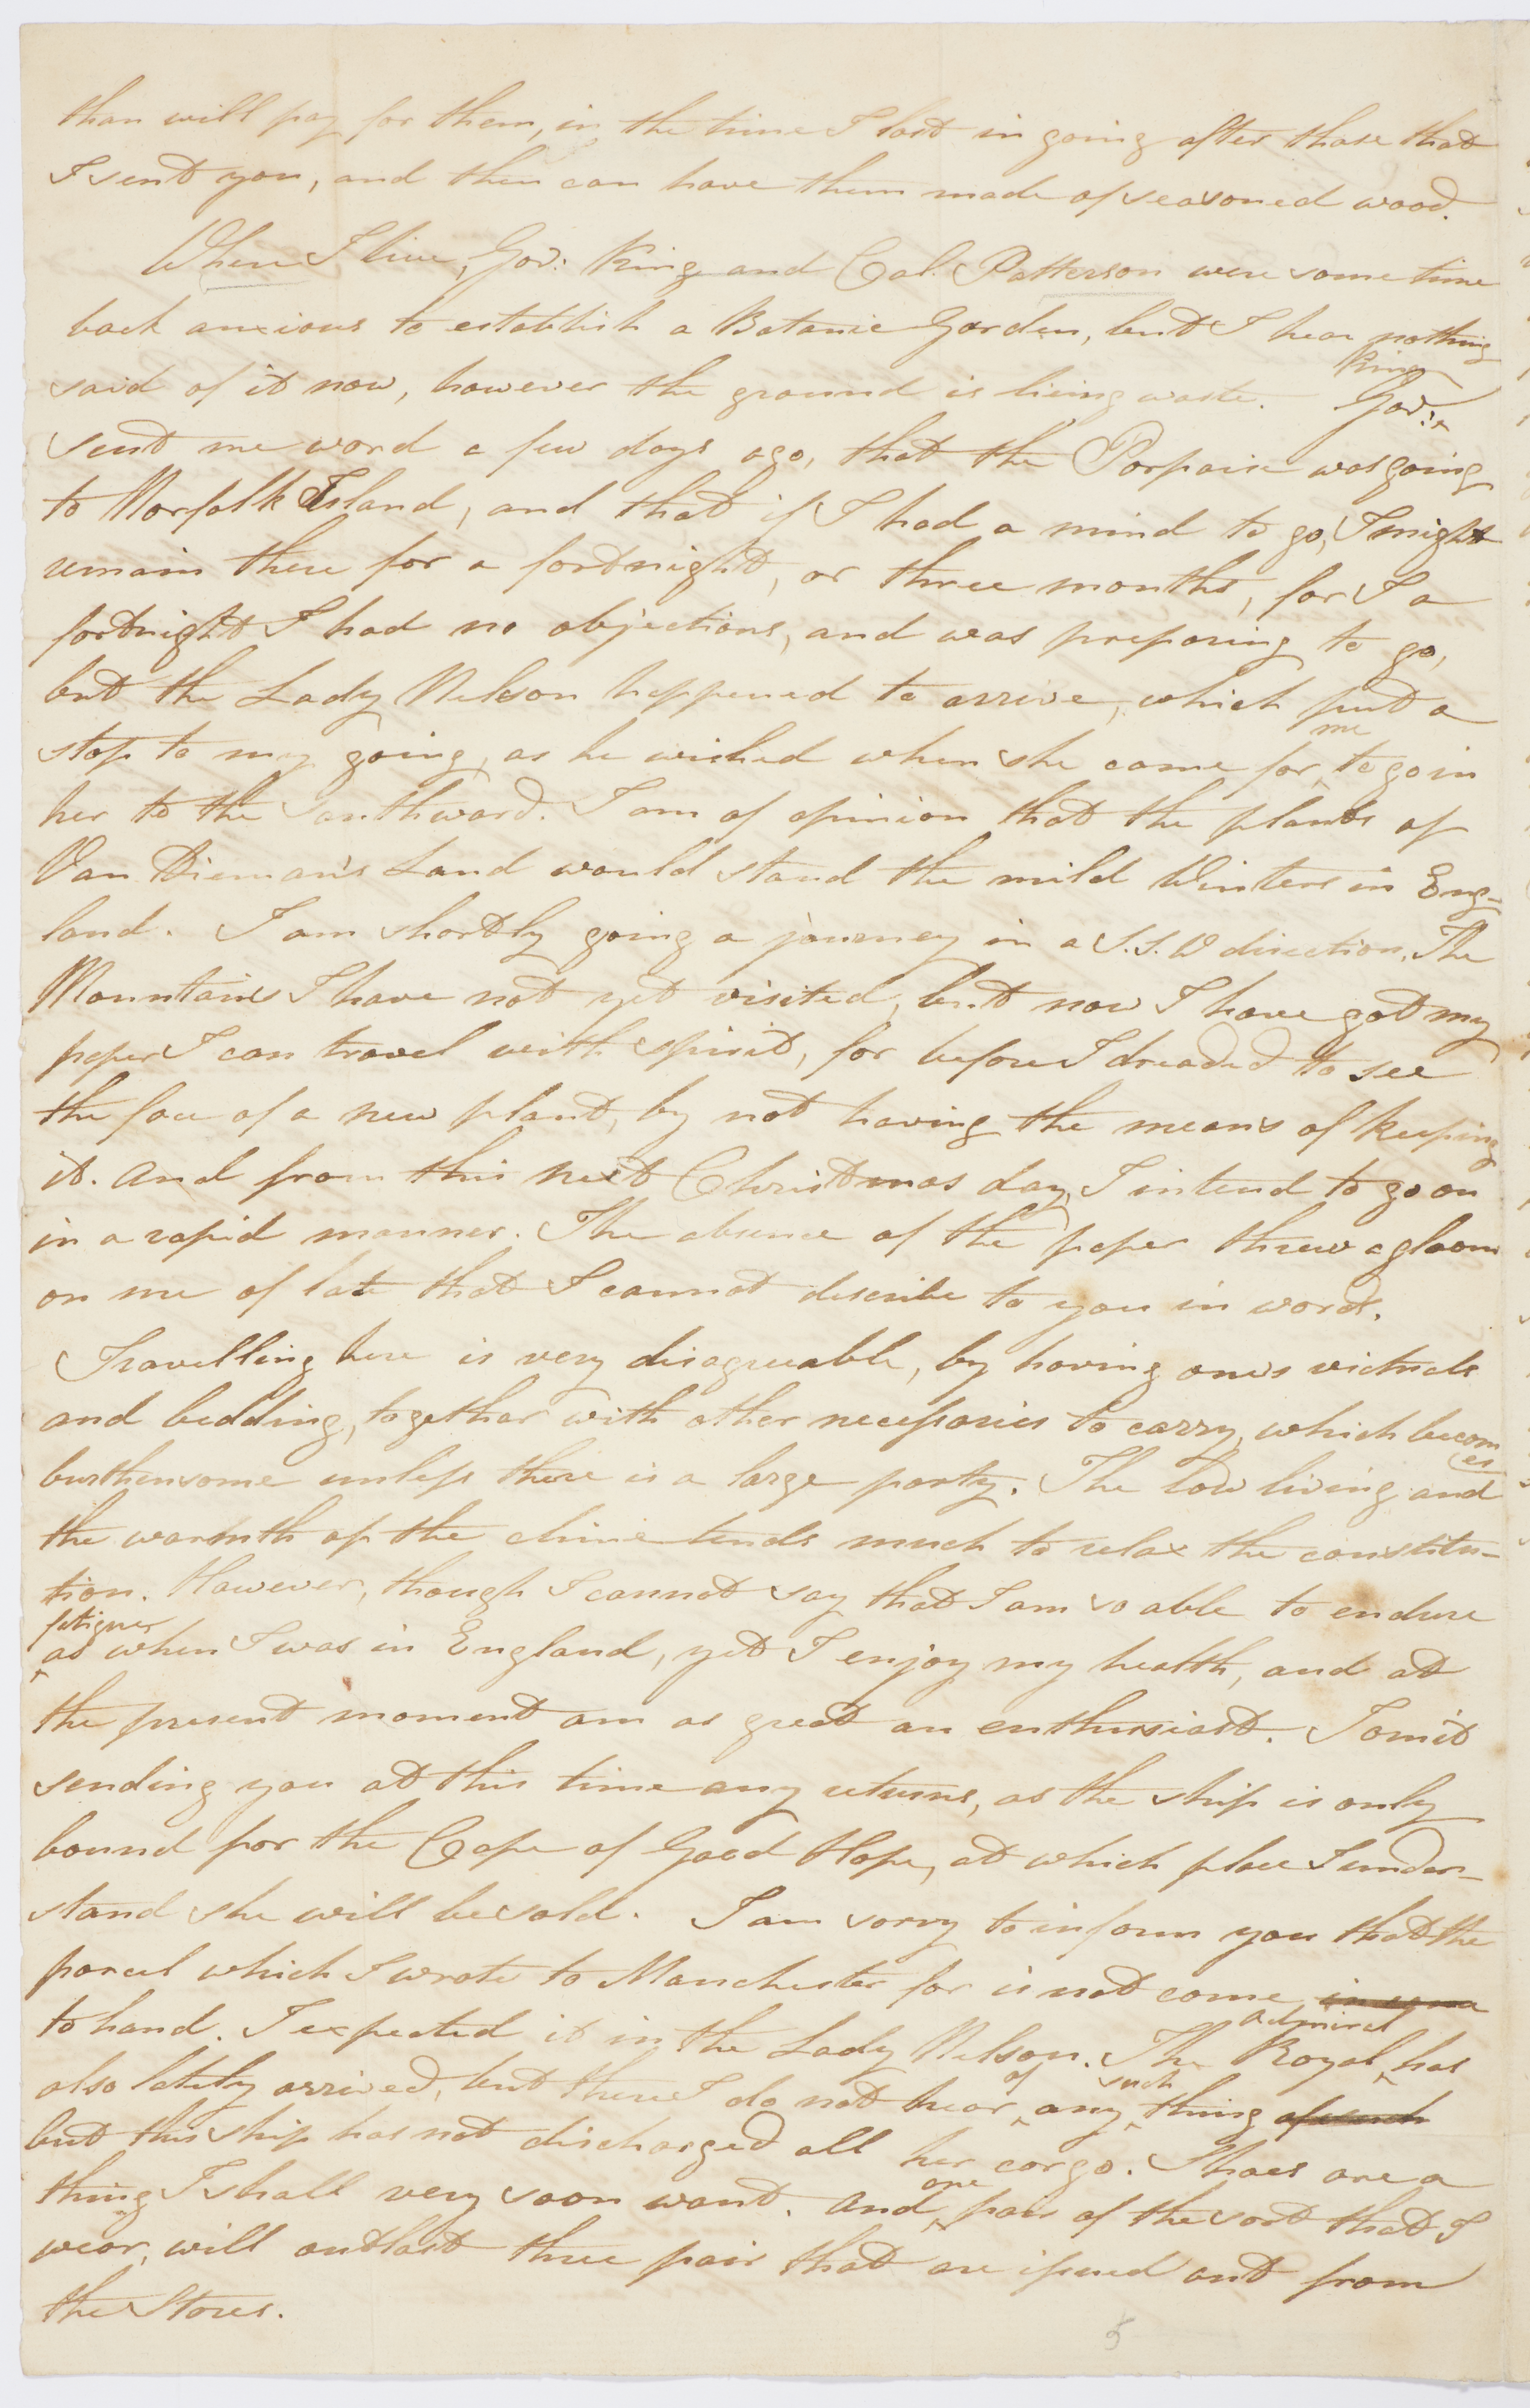 than will pay for them, in the time I lost in going after those that
I sent you, and then can have them made of seasoned wood.
Where I live, Gov: King and Col. Patterson were some time
back anxious to establish a Botanic Garden, but I hear nothing
said of it now, however the ground is lieing waste. Gov: King
sent me word a few days ago, that the Porpoise was going
to Norfolk Island, and that if I had a mind to go, I might
remain there for a fortnight, or three months, for I a
fortnight I had no objections, and was preparing to go,
but the Lady Nelson happened to arrive, which put a
stop to my going, as he wished when she came for me to go in
her to the Southward. I am of opinion that the plants of
Van Dieman's Land would stand the mild Winters in Eng-
land. I am shortly going a journey in a S.S.W direction. The
Mountains I have not yet visited, but now I have got my
paper I can travel with spirit, for before I dreaded to see
the face of a new plant, by not having the means of keeping
it. And from this next Christmas day, I intend to go on
in a rapid manner. The absence of the paper threw a gloom
on me of late that I cannot describe to you in words.
Travelling here is very disagreeable, by having one's victuals
and bedding, together with other necessaries to carry, which becomes
burthensome unless there is a large party. The low living and
the warmth of the clime tends much to relax the constitu-
tion. However, though I cannot say that I am so able to endure
fatigues as when I was in England, yet I enjoy my health, and at
the present moment am as great an enthusiast. I omit
sending you at this time any returns, as the ship is only
bound for the Cape of Good Hope, at which place I under-
stand she will be sold. I am sorry to inform you that the
parcel which I wrote to Manchester for is not come
to hand. I expected it in the Lady Nelson. The Royal Admiral has
also lately arrived, but there I do not hear of any such thing of such
but this ship has not discharged all her cargo. Shoes are a
thing I shall very soon want. And one pair of the sort that I
wear, will outlast three pair that are issued out from
the Stores.
5